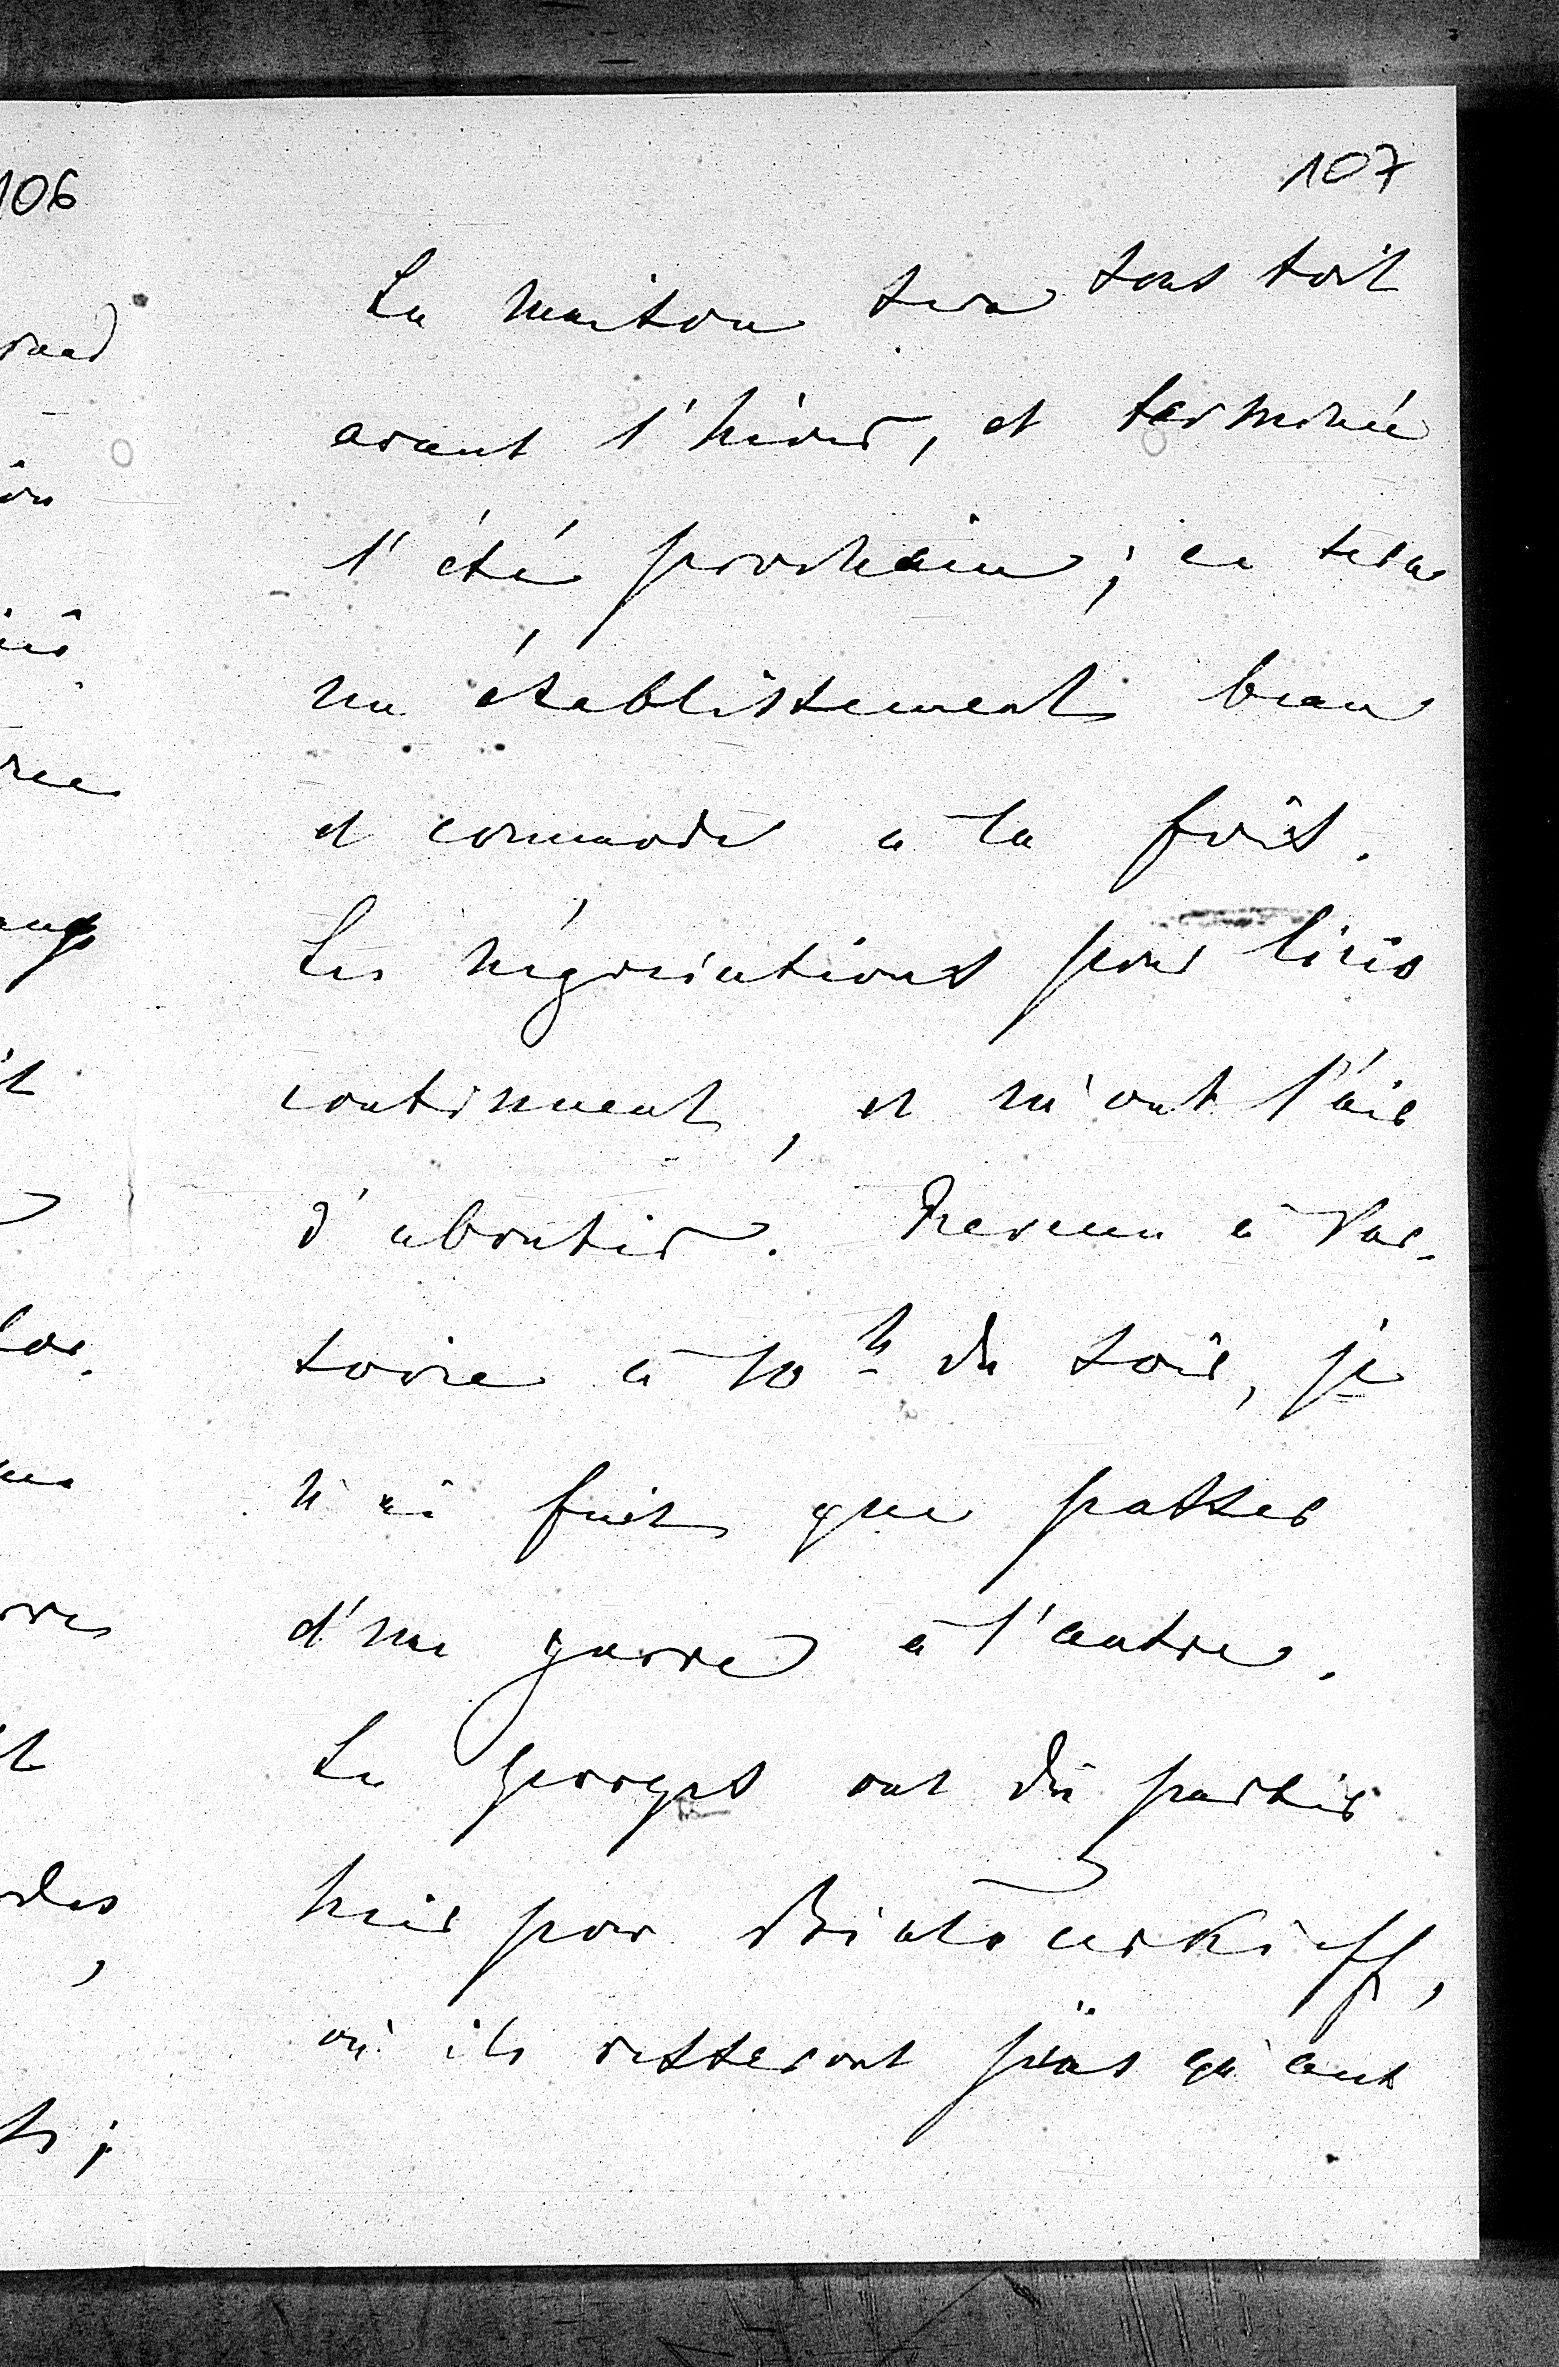 106
107
La maison sera sous toit
avant l'hiver, et terminée
l'été prochain; ce sera
un établissement beau
et commode à la fois.
Les négociations pour
continuent, et m'ont l'air
d'aboutir. Revenu à Var-
sovie à 10h du soir, je
n'ai fait que passer
d'une garre à l'autre.
Les Georges ont dû partir
hier pour
où ils resteront jusqu'aux